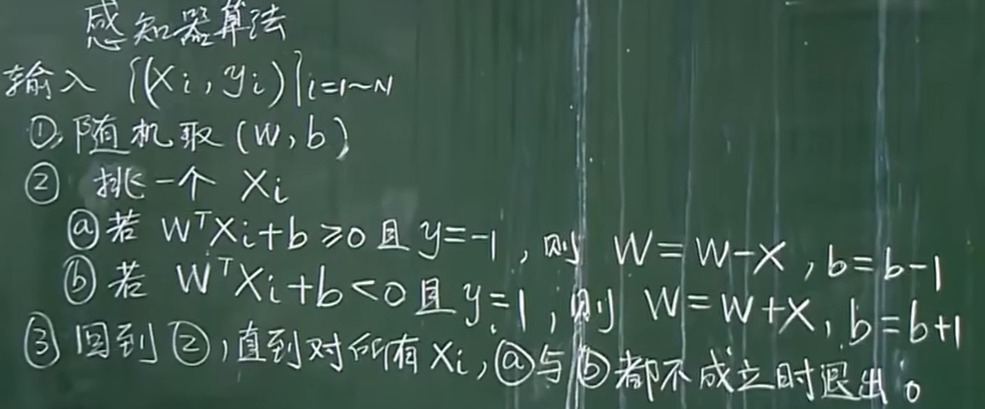 感知器算法
输入 {(Xi, yi)}i=1~N
①, 随机取(W, b)
② 挑一个 Xi
ⓐ若 WᵀXi+b≥0且y=-1, 则 W=W-X, b=b-1
ⓑ若 WᵀXi+b<0且y=1, 则 W=W+X, b=b+1
③回到②, 直到对所有Xi, ⓐ与ⓑ都不成立时退出。